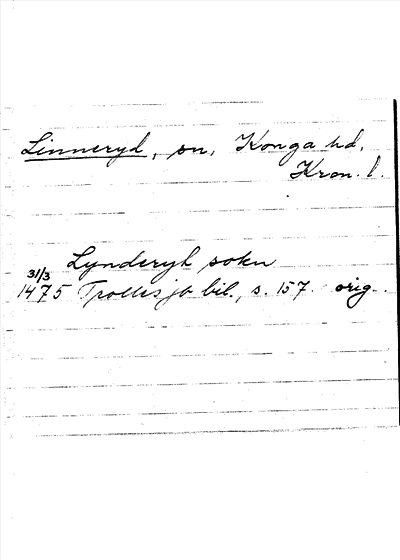 Linneryd, sn, Konga hd,
Kron. l.
Lynderyh sokn
31/3
1475 Trolles jb bil., s. 157. orig.